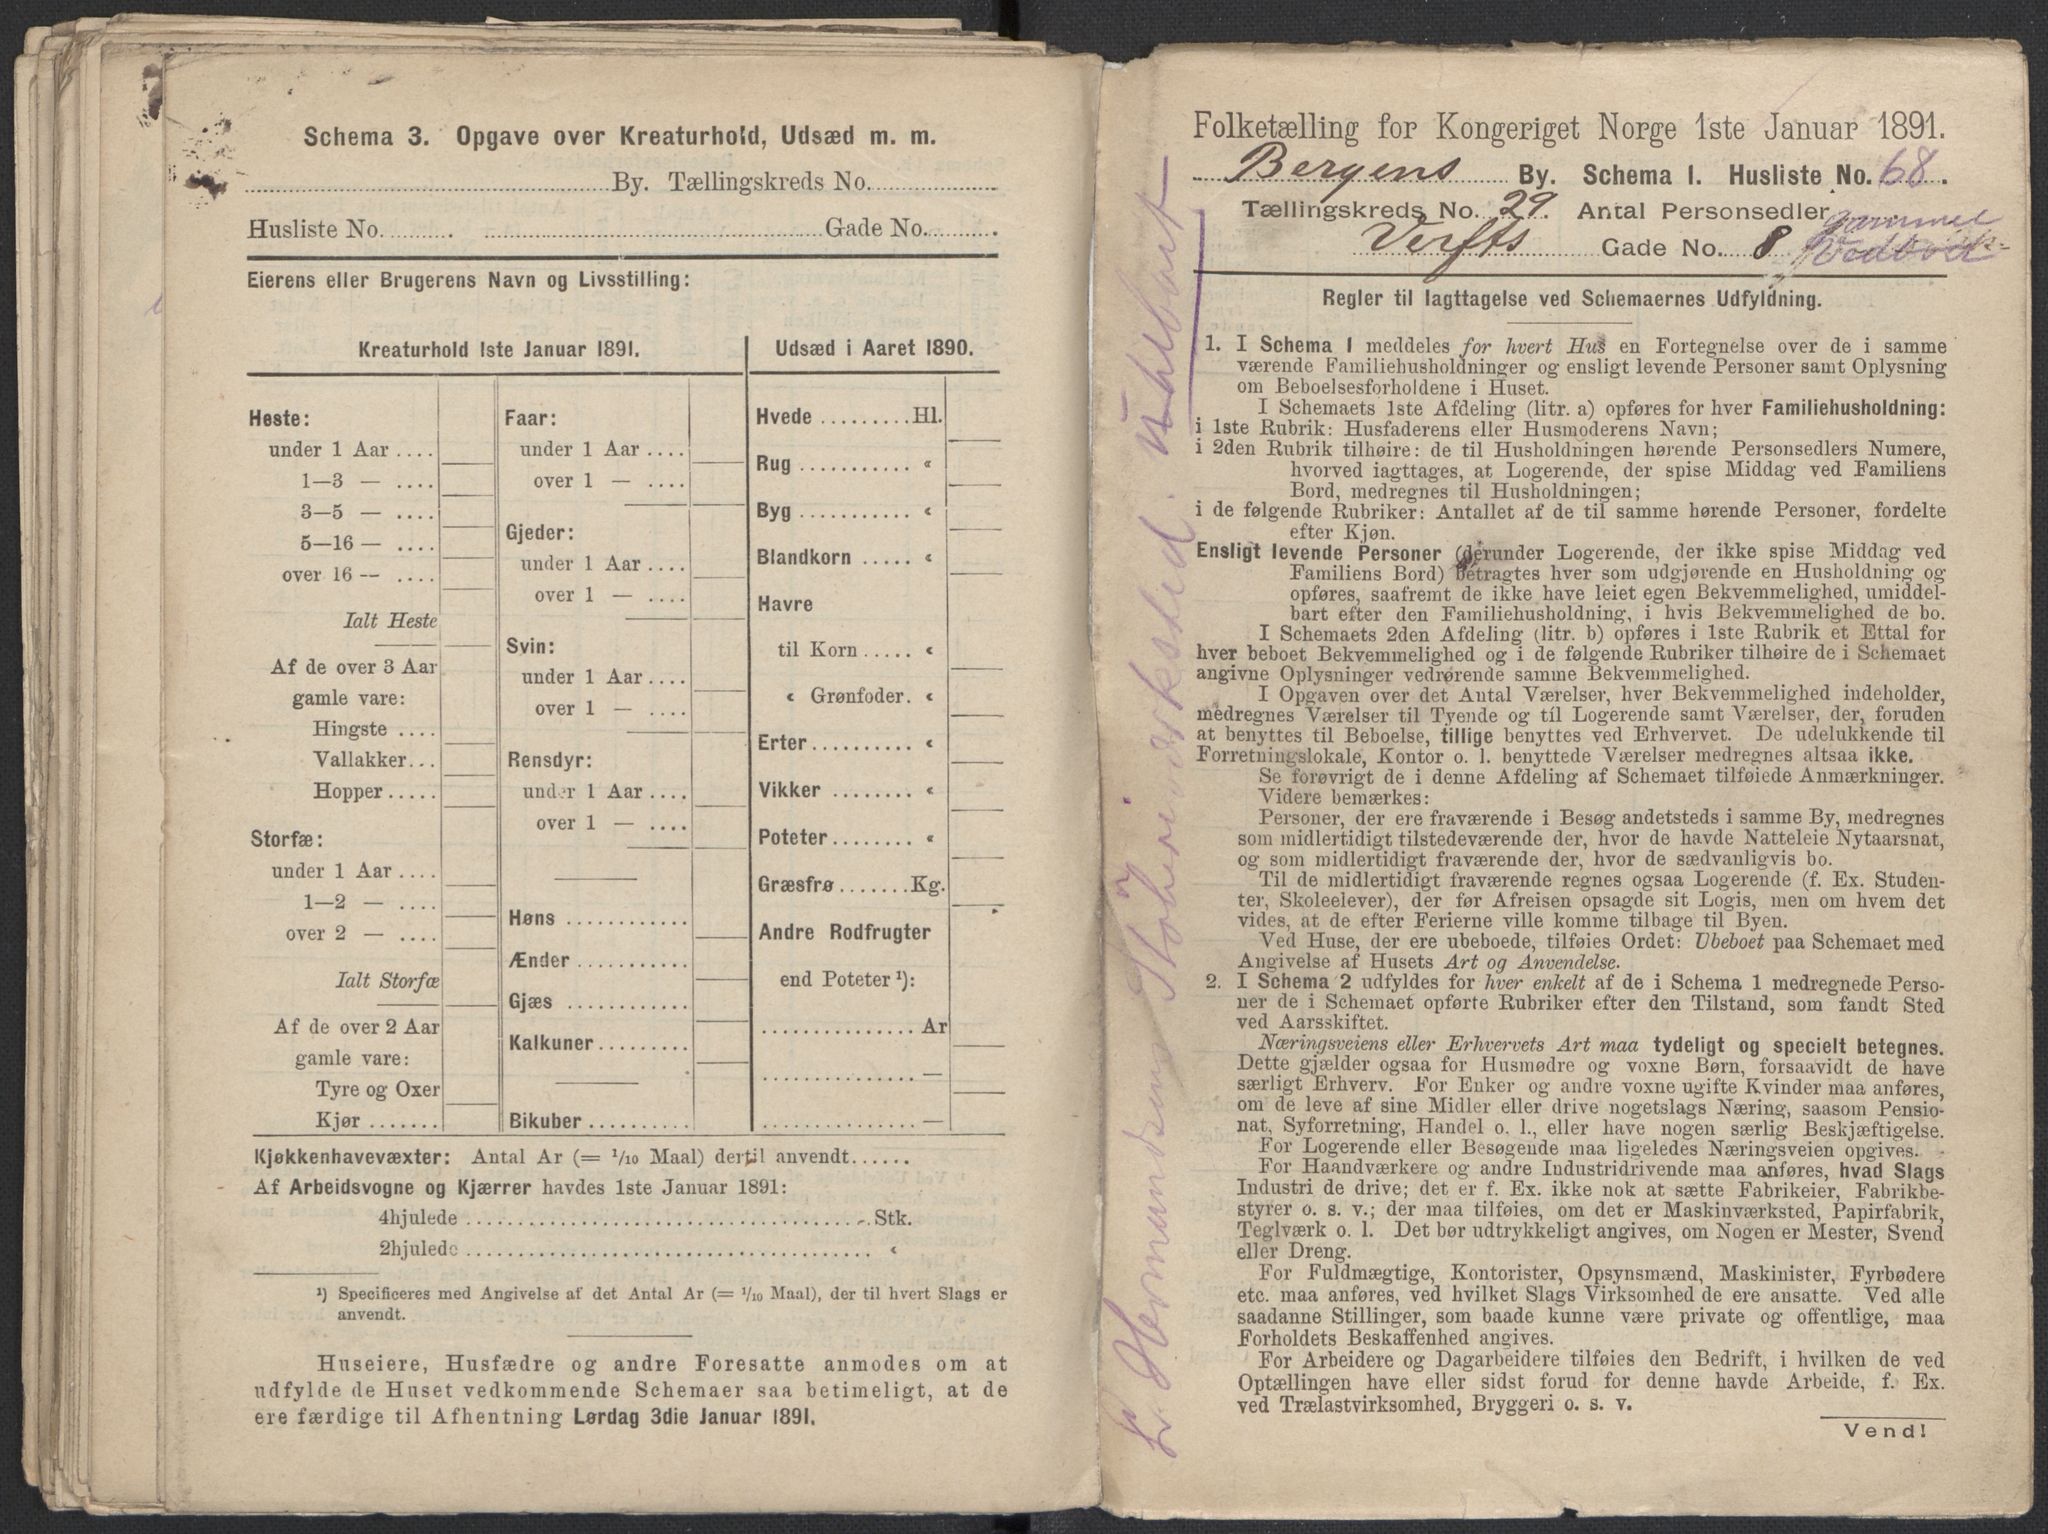 Schema 3. Opgave over Kreaturhold, Udsæd m. m.
By. Tællingskreds No.
Husliste No. Gade No.
Eierens eller Brugerens Navn og Livsstilling:
Kreaturhold 1ste Januar 1891.
Heste:
under 1 Aar
1—3 —
3—5 —
5—16 —
over 16 —
Ialt Heste
Af de over 3 Aar
gamle vare:
Hingste
Vallakker
Hopper
Storfæ:
under 1 Aar
1—2 —
over 2 —
Ialt Storfæ
Af de over 2 Aar
gamle vare:
Tyre og Oxer
Kjør
Faar:
under 1 Aar
over 1 —
Gjeder:
under 1 Aar
over 1 —
Svin:
under 1 Aar
over 1 —
Rensdyr:
under 1 Aar
over 1 —
Høns
Ænder
Gjæs
Kalkuner
Bikuber
Udsæd i Aaret 1890.
Hvede Hl.
Rug «
Byg «
Blandkorn «
Havre
til Korn «
« Grønfoder «
Erter «
Vikker «
Poteter «
Græsfrø Kg.
Andre Rodfrugter
end Poteter ¹):
Ar
—
—
Kjøkkenhavevæxter: Antal Ar (= 1/10 Maal) dertil anvendt
Af Arbeidsvogne og Kjærrer havdes 1ste Januar 1891:
4hjulede Stk.
2hjulede «
¹) Specificeres med Angivelse af det Antal Ar (= 1/10 Maal), der til hvert Slags er
anvendt.
Huseiere, Husfædre og andre Foresatte anmodes om at
udfylde de Huset vedkommende Schemaer saa betimeligt, at de
ere færdige til Afhentning Lørdag 3die Januar 1891.
Folketælling for Kongeriget Norge 1ste Januar 1891.
Bergens By. Schema 1. Husliste No. 68.
Tællingskreds No. 29. Antal Personsedler
Verfts Gade No. 8
gammel
Regler til Iagttagelse ved Schemaernes Udfyldning.
1. I Schema 1 meddeles for hvert Hus en Fortegnelse over de i samme
værende Familiehusholdninger og ensligt levende Personer samt Oplysning
om Beboelsesforholdene i Huset.
I Schemaets 1ste Afdeling (litr. a) opføres for hver Familiehusholdning:
i 1ste Rubrik: Husfaderens eller Husmoderens Navn;
i 2den Rubrik tilhøire: de til Husholdningen hørende Personsedlers Numere,
hvorved iagttages, at Logerende, der spise Middag ved Familiens
Bord, medregnes til Husholdningen;
i de følgende Rubriker: Antallet af de til samme hørende Personer, fordelte
efter Kjøn.
Ensligt levende Personer (derunder Logerende, der ikke spise Middag ved
Familiens Bord) betragtes hver som udgjørende en Husholdning og
opføres, saafremt de ikke have leiet egen Bekvemmelighed, umiddel-
bart efter den Familiehusholdning, i hvis Bekvemmelighed de bo.
I Schemaets 2den Afdeling (litr. b) opføres i 1ste Rubrik et Ettal for
hver beboet Bekvemmelighed og i de følgende Rubriker tilhøire de i Schemaet
angivne Oplysninger vedrørende samme Bekvemmelighed.
I Opgaven over det Antal Værelser, hver Bekvemmelighed indeholder,
medregnes Værelser til Tyende og til Logerende samt Værelser, der, foruden
at benyttes til Beboelse, tillige benyttes ved Erhvervet. De udelukkende til
Forretningslokale, Kontor o. l. benyttede Værelser medregnes altsaa ikke.
Se forøvrigt de i denne Afdeling af Schemaet tilføiede Anmærkninger.
Videre bemærkes:
Personer, der ere fraværende i Besøg andetsteds i samme By, medregnes
som midlertidigt tilstedeværende der, hvor de havde Natteleie Nytaarsnat,
og som midlertidigt fraværende der, hvor de sædvanligvis bo.
Til de midlertidigt fraværende regnes ogsaa Logerende (f. Ex. Studen-
ter, Skoleelever), der før Afreisen opsagde sit Logis, men om hvem det
vides, at de efter Ferierne ville komme tilbage til Byen.
Ved Huse, der ere ubeboede, tilføies Ordet: Ubeboet paa Schemaet med
Angivelse af Husets Art og Anvendelse.
2. I Schema 2 udfyldes for hver enkelt af de i Schema 1 medregnede Perso-
ner de i Schemaet opførte Rubriker efter den Tilstand, som fandt Sted
ved Aarsskiftet.
Næringsveiens eller Erhvervets Art maa tydeligt og specielt betegnes.
Dette gjælder ogsaa for Husmødre og voxne Børn, forsaavidt de have
særligt Erhverv. For Enker og andre voxne ugifte Kvinder maa anføres,
om de leve af sine Midler eller drive nogetslags Næring, saasom Pensio-
nat, Syforretning, Handel o. l., eller have nogen særlig Beskjæftigelse.
For Logerende eller Besøgende maa ligeledes Næringsveien opgives.
For Haandværkere og andre Industridrivende maa anføres, hvad Slags
Industri de drive; det er f. Ex. ikke nok at sætte Fabrikeier, Fabrikbe-
styrer o. s. v.; der maa tilføies, om det er Maskinværksted, Papirfabrik,
Teglværk o. l. Det bør udtrykkeligt angives, om Nogen er Mester, Svend
eller Dreng.
For Fuldmægtige, Kontorister, Opsynsmænd, Maskinister, Fyrbødere
etc. maa anføres, ved hvilket Slags Virksomhed de ere ansatte. Ved alle
saadanne Stillinger, som baade kunne være private og offentlige, maa
Forholdets Beskaffenhed angives.
For Arbeidere og Dagarbeidere tilføies den Bedrift, i hvilken de ved
Optællingen have eller sidst forud for denne havde Arbeide, f. Ex.
ved Trælastvirksomhed, Bryggeri o. s. v.
Vend!
Hermundsens Støberiværksted. Ubeboet